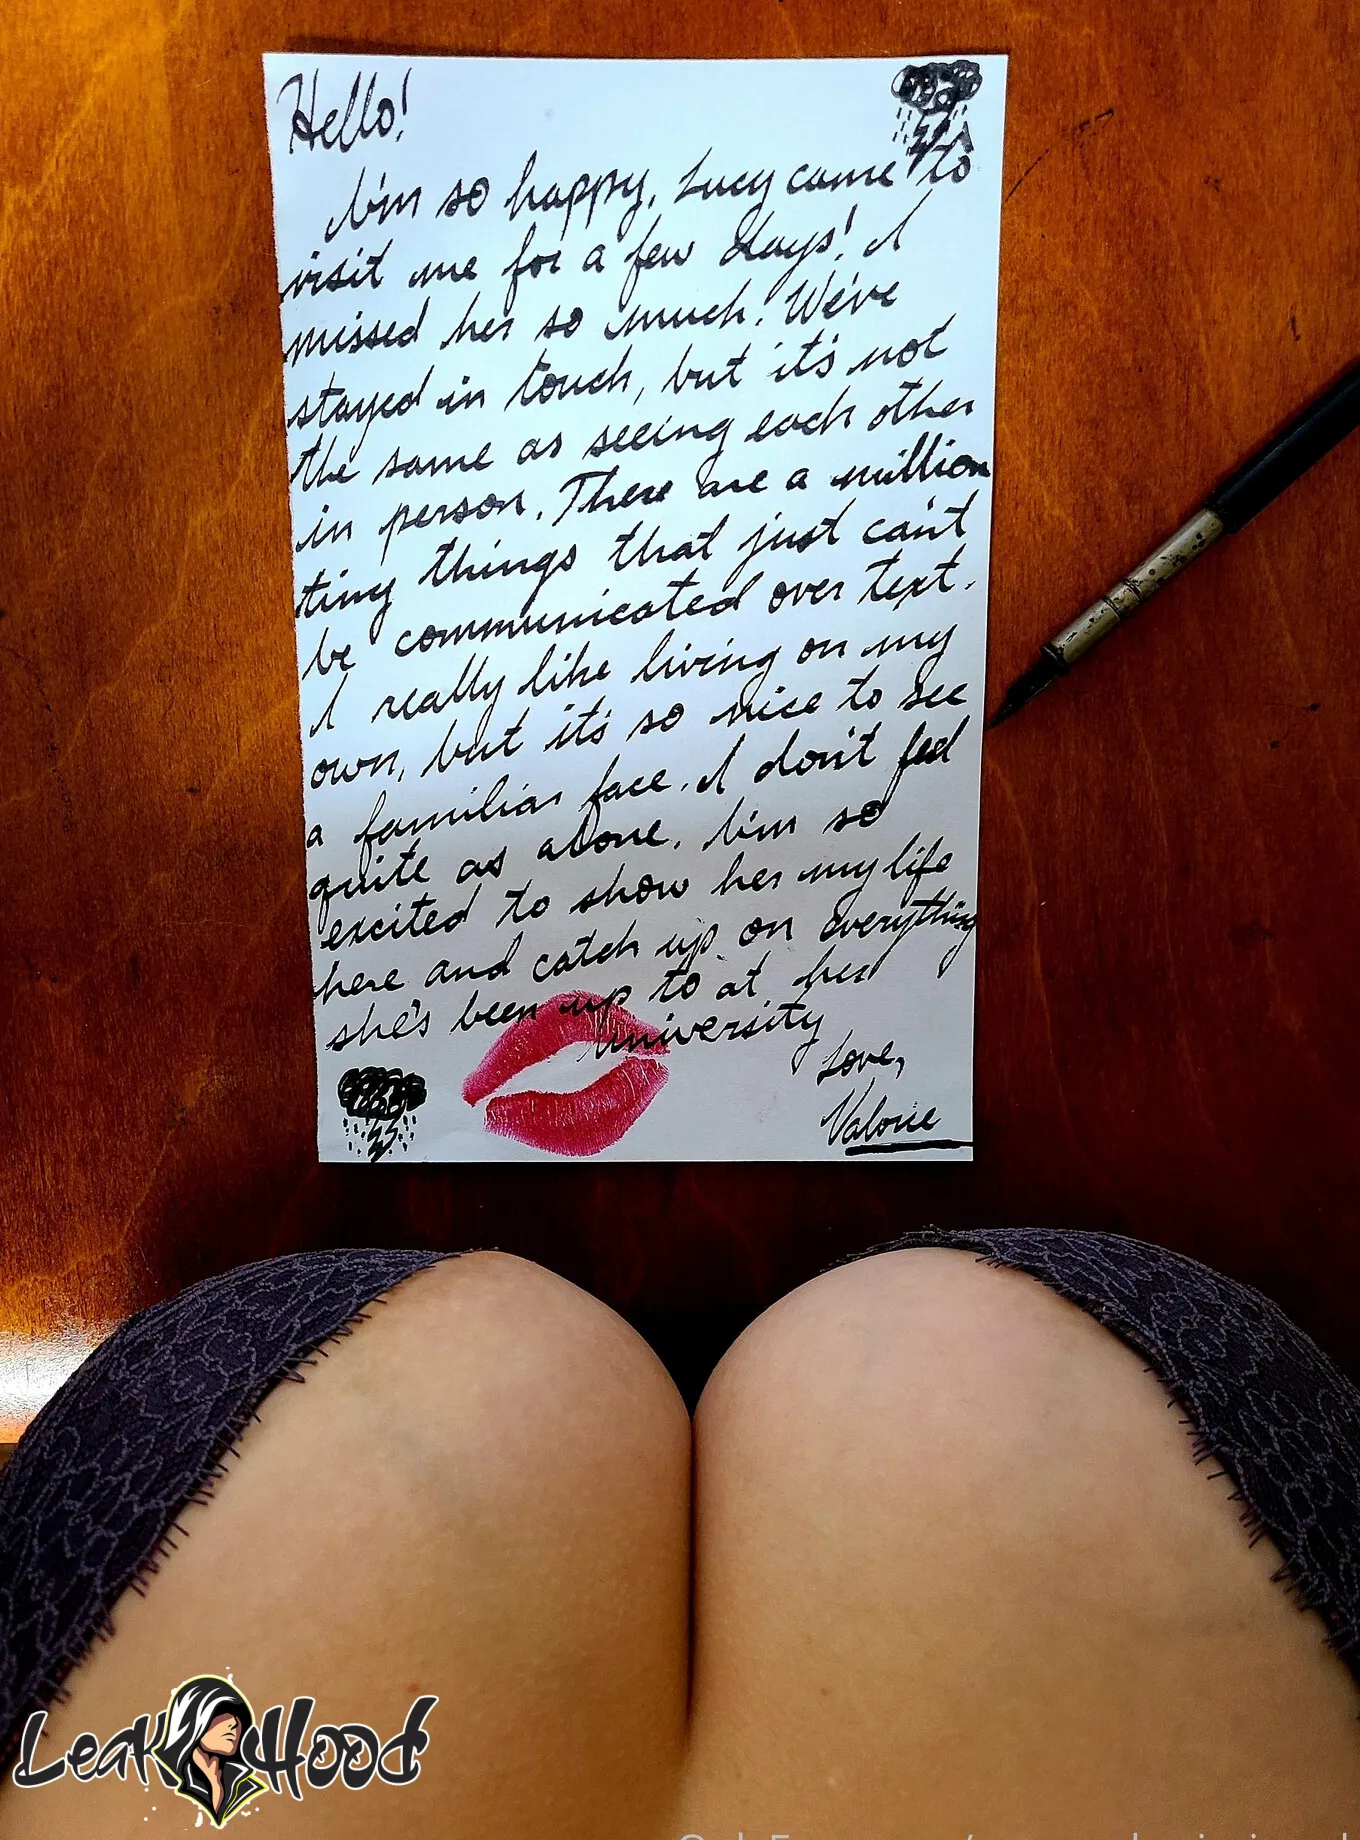 Hello!
I'm so happy, Lucy came to
visit me for a few days! I
missed her so much! We've
stayed in touch, but it's not
the same as seeing each other
in person. There are a million
tiny things that just can't
be communicated over text.
I really like living on my
own, but it's so nice to see
a familiar face. I don't feel
quite as alone. I'm so
excited to show her my life
here and catch up on everything
she's been up to at her
university
Love,
Valorie
LeakHood